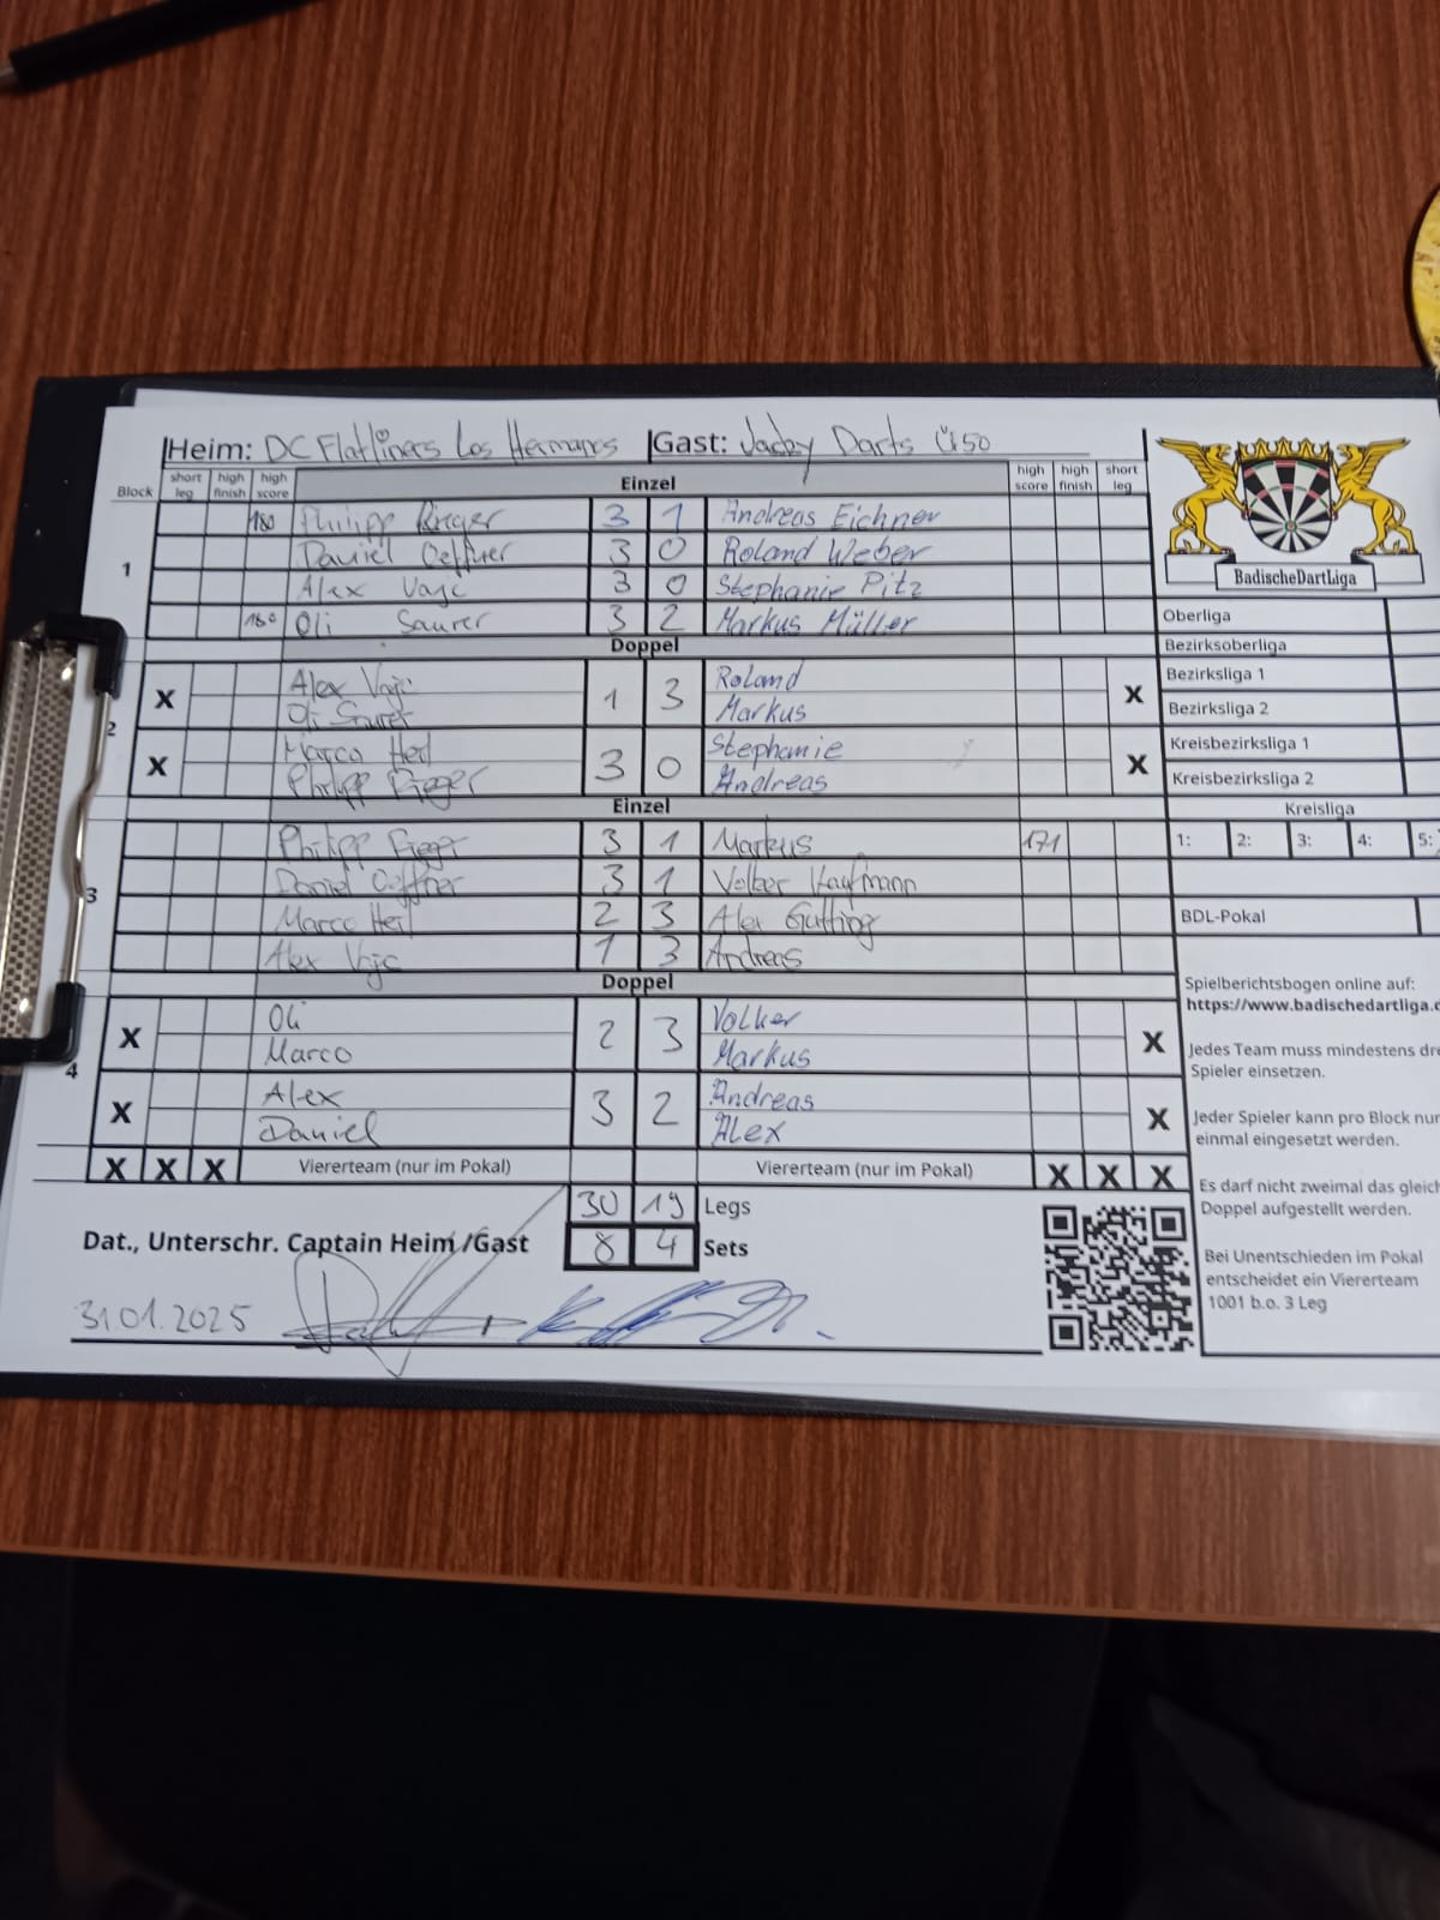 Heim: DC Flatliners Los Hermanos Gast: Jacky Darts Ü50
Block short leg high finish high score Einzel high score high finish short leg
1
180 Philipp Rieger 3 1 Andreas Eichner
Daniel Oeffner 3 0 Roland Weber
Alex Vajc 3 0 Stephanie Pitz
180 Oli Saurer 3 2 Markus Müller
Doppel
2
X Alex Vajc 1 3 Roland X
Oli Saurer Markus
X Marco Heil 3 0 Stephanie X
Philipp Rieger Andreas
Einzel
3
Philipp Rieger 3 1 Markus 171
Daniel Oeffner 3 1 Volker Kaufmann
Marco Heil 2 3 Alex Gutting
Alex Vajc 1 3 Andreas
Doppel
4
X Oli 2 3 Volker X
Marco Markus
X Alex 3 2 Andreas X
Daniel Alex
X X X Viererteam (nur im Pokal) Viererteam (nur im Pokal) X X X
30 19 Legs
Dat., Unterschr. Captain Heim /Gast 8 4 Sets
31.01.2025
BadischeDartLiga
Oberliga
Bezirksoberliga
Bezirksliga 1
Bezirksliga 2
Kreisbezirksliga 1
Kreisbezirksliga 2
Kreisliga
1: 2: 3: 4: 5:
BDL-Pokal
Spielberichtsbogen online auf:
https://www.badischedartliga.d
Jedes Team muss mindestens dre
Spieler einsetzen.
Jeder Spieler kann pro Block nur
einmal eingesetzt werden.
Es darf nicht zweimal das gleich
Doppel aufgestellt werden.
Bei Unentschieden im Pokal
entscheidet ein Viererteam
1001 b.o. 3 Leg